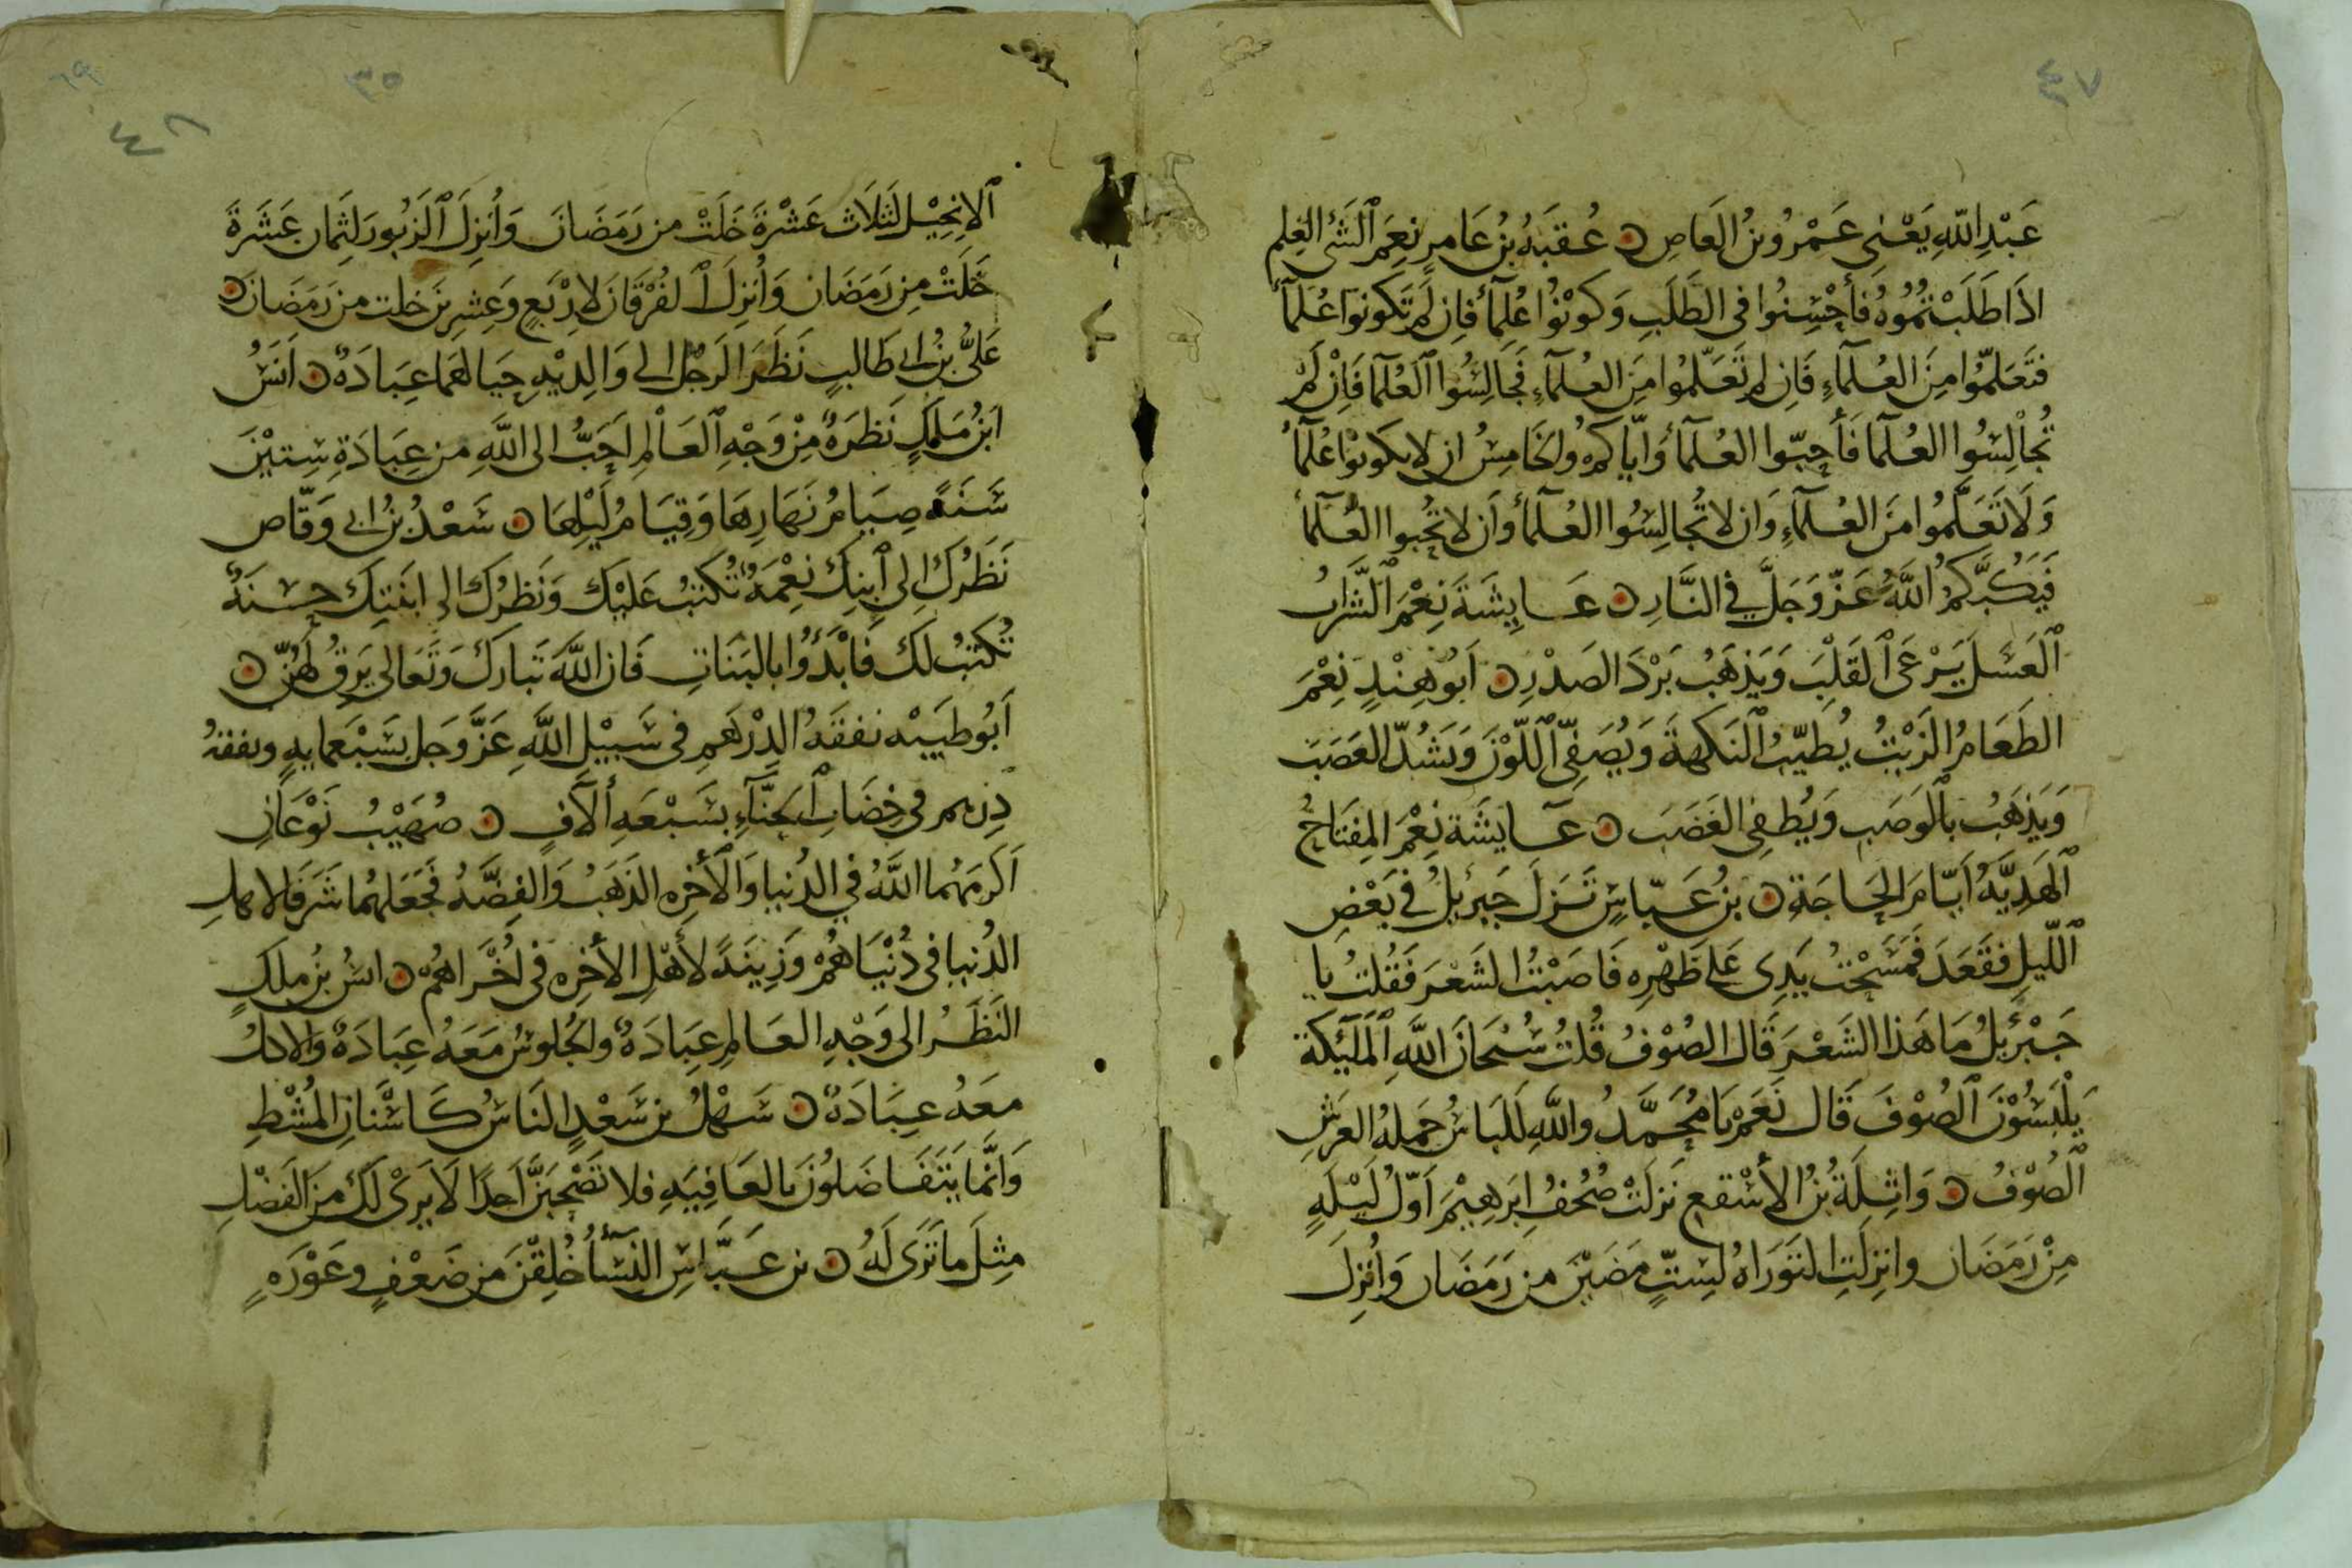 ٤٧
عَبْدِ اللّٰهِ يَعْنِى عَمْرُو بنُ العَاصِ ۝ عُقبَهُ بنُ عَامِرٍ نِعِمَ الشَئ العِلم
اذَا طَلَبْتُمُوُهُ فَأَحْسِنُوا فى الطَلَبِ وَكُوْنُوْا عُلمآءً فَاِن لَم تَكونوا عُلمآءً
فتَعَلّمُوا مِنَ العُلَمآءِ فَاِن لم تَعَلّمُوا مِنَ العُلمآءِ فَجَالِسُوا العُلمآ فَاِنْ لَمْ
تُجالِسُوا العُلمآ فَأَحِبّوا العُلمآءَ وَايّاكم وُالخَامِسُ ان لا تكونوْا عُلمآءً
وَلَا تَعَلَّمُوا مِنَ العُلمآءِ وَان لا تُجالِسُوا العُلمآءَ وَاَن لا تُحِبوا العُلمآءَ
فَيَكُبَّكمُ اللَّهُ عَزّوَجَلَّ فِى النَّارِ ۝ عَايِشَةَ نِعْمَ الشَّرابُ
العَسَل يَرْعَى القَلْبَ وَيَذهَبُ بَرْدَ الصَدْرِ ۝ اَبُو هِنْدٍ نِعْمَ
الطَعَامُ الزَيْتُ يُطَيّبُ النَكهةَ وَيُصَفِىّ اللّوْنَ وَيَشُدّ العَصَبَ
وَيَذهَبُ بِالوَصَبِ وَيُطفِى الغَضَبَ ۝ عَايشَة نِعْمَ المِفتَاحُ
الهَدِيَّهُ اَمَامَ الحَاجَةِ ۝ بنُ عَبّاسٍ نَزَلَ جَبرئيلُ فى بَعْضِ
اللّيلِ فقَعَدَ فَمَسَحْتُ يَدِى عَلى ظَهْرِه فَاصَبْتُ الشَعْرَ فَقُلتُ يا
جَبْرَئيلُ مَا هَذا الشَعْرَ قَال الصُوْفُ قُلتُ سُبْحَانَ اللّهِ المَلَئِكة
يَلْبَسُوْنَ الصُوْفَ قَال نَعَمْ يَا مُحَمَّدُ واللّهِ لَلبَاسُ حَملهُ العَرشِ
الصُوْفُ ۝ وَاثِلَةُ بنُ الأسْقع نَزلَتْ صُحُفُ اِبَرهِيْمَ اَوّلُ لَيْلَهٍ
مِنْ رَمَضَان وانزِلَتِ التَوَرَاهُ لسِتٍّ مَضَيْنَ من رَمَضَان وَاُنزِلَ
٦٩
٣٥
٤٨
الاِنجِيْل لثَلاَث عَشْرَةَ خَلَتْ من رَمَضَانَ وَأُنزِلَ الزَبُورَ لثِمَان عَشَرةَ
خَلَتْ مِن رَمَضَان وَأُنزِلَ الفُرْقَانَ لاِرْبَعٍ وَعِشرِينَ خلت من رَمَضَانَ ۝
عَلىُّ بنُ ابى طَالبٍ نَظَرَ الرَجُل الى وَالِدِيْهِ حِبًا لهَما عِبَادَهٌ ۝ اَنسُ
ابنُ مَلِكٍ نَظرَهٌ مِنْ وَجْهِ العَالِمِ اَحَبُّ الى اللَّهِ من عِبَادَةِ سِتيْنَ
سَنَهً صِيَامُ نَهَارِهَا وَقِيَامُ لَيْلِهَا ۝ سَعْدُ بنُ ابى وَقّاص
نَظرُكَ اِلى اَبنِكَ نِعْمَهٌ تُكتَبُ عَليْك وَنَظرُك الى ابنَتِكَ حسَنَهٌ
تُكتَبُ لَك فَابْدَؤُا بالبَنَاتِ فَان اللَّهَ تَبارَكَ وَتَعَالى يَرِقُ لهُنّ ۝
اَبُو طَيبَه نفقَهُ الدِرْهَمِ فى سَبيْلِ اللَّهِ عَزَّوَجَل بسَبْعمايهٍ ونفقهُ
دِرْهمٍ فى خِضَابِ الحِنَّآءِ بسَبْعَهِ آلآفٍ ۝ صُهَيْبُ نَوْعَانِ
اَكرمَهُما اللَّهُ فى الدُنيا وَالأخِره الذَهَبُ وَالفِضَّهُ فجَعَلهُما شَرَفًا لاهلِ
الدُنيا فى دُنْيَاهُمْ وَزِينَهً لأهْلِ الأخِرَه فى اُخْراهُم ۝ انسُ بنُ ملكٍ
النَظَرُ الى وَجْهِ العَالِمِ عِبَادَهٌ والجُلوسُ مَعَهُ عِبَادَهٌ والاكلُ
معَهُ عِبَادَهٌ ۝ سَهْلُ بن سَعْدٍ الناسُ كَاسْنَانِ المُشْطِ
وَانَّما يَتَفَاضَلوُنَ بالعَافِيَهِ فلا تَصْحَبَنَّ اَحدًا لَا يَرَى لَك مِنَ الفَضْلِ
مِثلَ ما تَرَى لَهُ ۝ بن عَبَّاسٍ النِسَآءُ خُلِقْنَ من ضَعْفٍ وعَوْرَهٍ